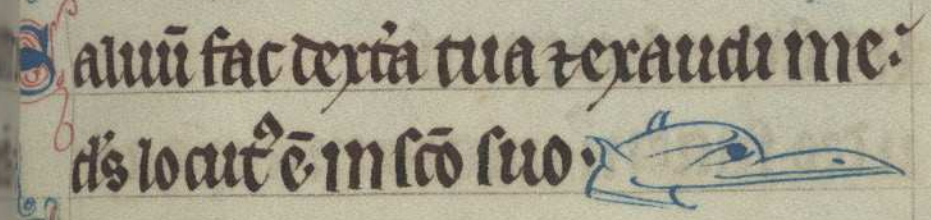 Saluū fac dext͛a tua ⁊ exaudi me:
d̄s locutꝰ ē in sc̄o suo.